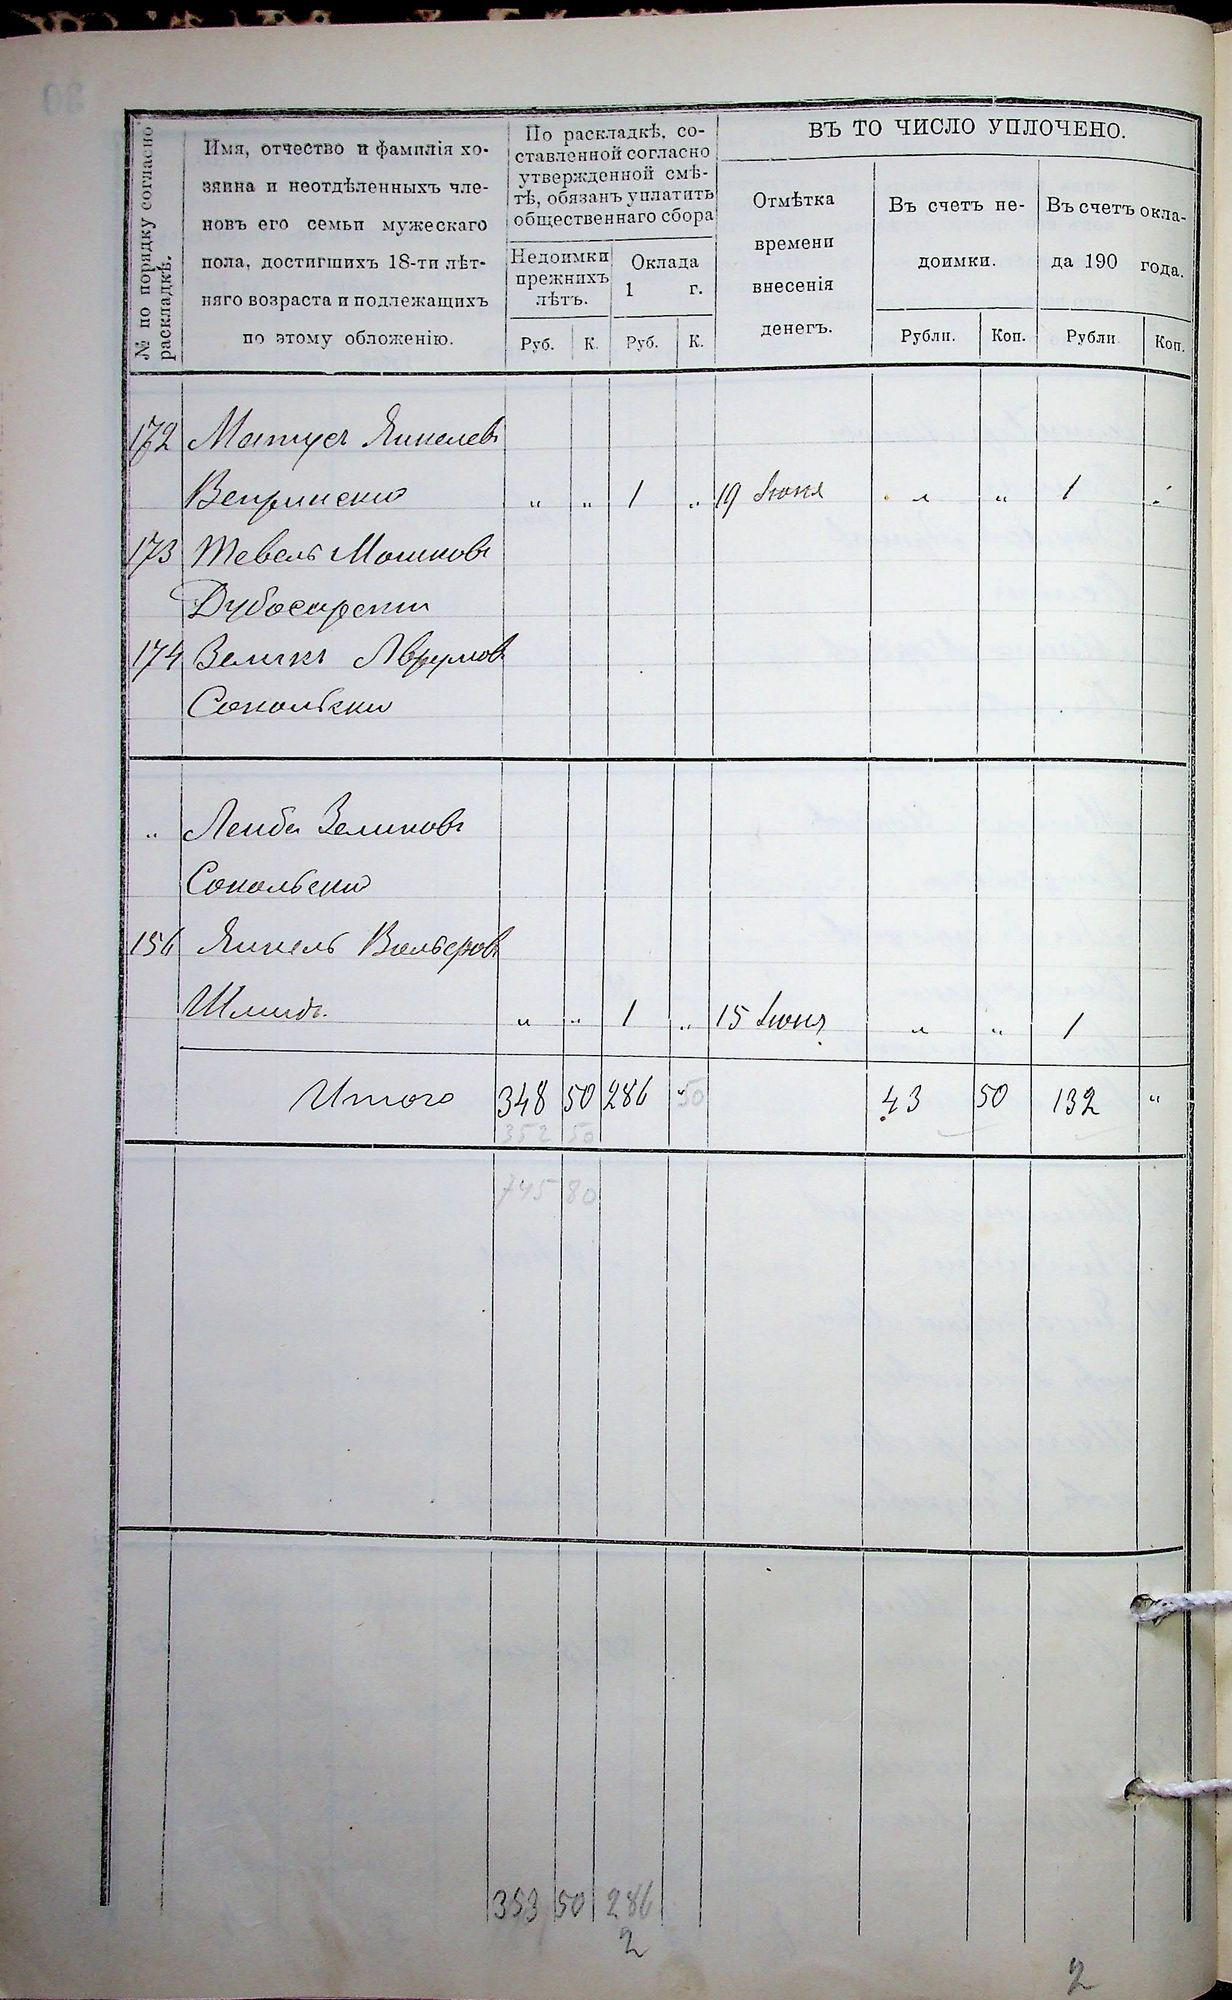 № по порядку согласно
раскладкѣ.
Имя, отчество и фамилія хо-
зяина и неотдѣленныхъ чле-
новъ его семьи мужескаго
пола, достигшихъ 18-ти лѣт-
няго возраста и подлежащихъ
по этому обложенію.
По раскладкѣ, со-
ставленной согласно
утвержденной смѣ-
тѣ, обязанъ уплатить
общественнаго сбора
Недоимки
прежнихъ
лѣтъ.
Оклада
1 г.
Руб. К. Руб. К.
ВЪ ТО ЧИСЛО УПЛОЧЕНО.
Отмѣтка
времени
внесенія
денегъ.
Въ счетъ не-
доимки.
Въ счетъ окла-
да 190 года.
Рубли. Коп. Рубли Коп.
172 Матусъ Янкелевъ
Вепринскій „ „ 1 „ 19 Іюня „ „ 1 „
173 Тевель Мошковъ
Дубосарскій
174 Зеликъ Аврумовъ
Сокольскій
„ Лейба Зеликовъ
Сокольскій
156 Янкель Вольфовъ
Шмидъ. „ „ 1 „ 15 Іюня „ „ 1
Итого 348 50 286 „ 50 43 50 132 „
352 50
745 80
353 50 286
2
2